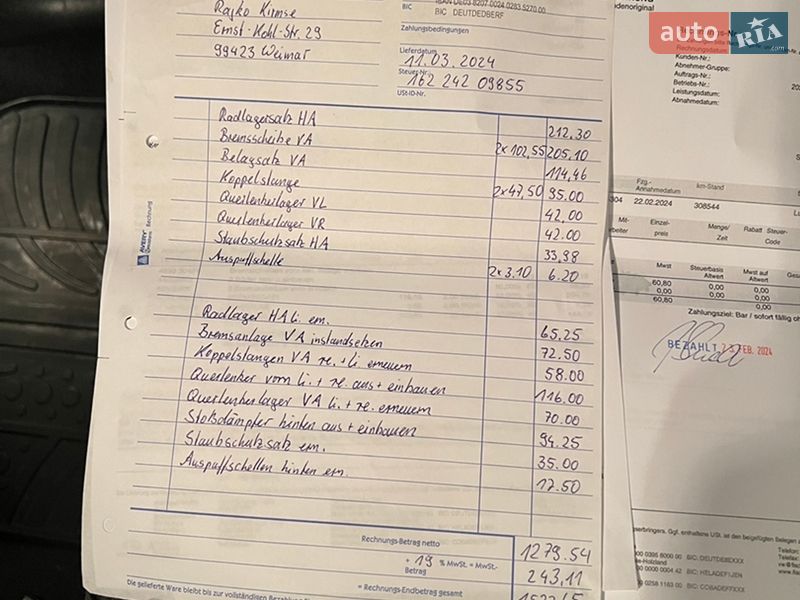 Rajko Kirmse
Ernst-Kohl-Str. 29
99423 Weimar
BIC
BIC DEUTDEDBERF
Zahlungsbedingungen
Lieferdatum
11.03.2024
Steuer-Nr.
162 242 09855
USt-ID-Nr.
Radlagersatz HA 212,30
Bremsscheibe VA 2x 102,55 205,10
Belagsatz VA 114,46
Koppelstange 2x 47,50 95.00
Querlenkerlager VL 42.00
Querlenkerlager VR 42.00
Staubschutzsatz HA 33,98
Auspuffschelle 2x 3,10 6.20
Radlager HA li. ern. 65.25
Bremsanlage VA instandsetzen 72.50
Koppelstangen VA re. + li. erneuern 58.00
Querlenker vorn li. + re. aus + einbauen 116.00
Querlenkerlager VA li. + re. erneuern 70.00
Stoßdämpfer hinten aus + einbauen 94.25
Staubschutzsatz ern. 35.00
Auspuffschellen hinten ern. 17.50
Rechnungs-Betrag netto 1279.54
+ 19 % MwSt. = MwSt.-Betrag 243,11
= Rechnungs-Endbetrag gesamt
AVERY
Zweckform
Rechnung
auto RIA .com
Kunden-Nr.:
Abnehmer-Gruppe:
Auftrags-Nr.:
Betriebs-Nr.:
Leistungsdatum:
Abnahmedatum:
Fzg.-Annahmedatum km-Stand
304 22.02.2024 308544
Einzelpreis Menge/Zeit Rabatt Steuer-Code
Mwst Steuerbasis Altwert Mwst auf Altwert
60,80 0,00 0,00
0,00 0,00 0,00
60,80 0,00
Zahlungsziel: Bar / sofort fällig
BEZAHLT 23. FEB. 2024